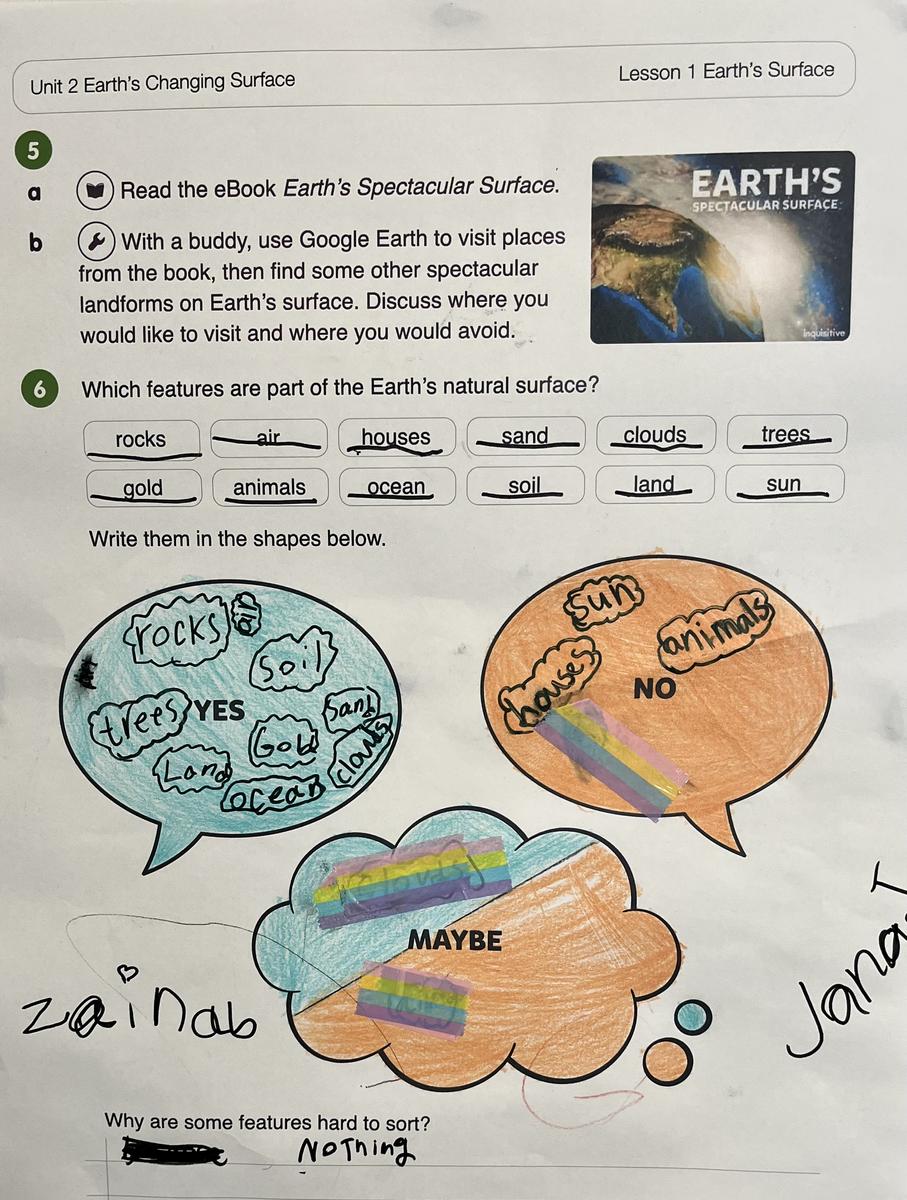 Unit 2 Earth's Changing Surface
Lesson 1 Earth's Surface
5
a Read the eBook Earth's Spectacular Surface.
b With a buddy, use Google Earth to visit places
from the book, then find some other spectacular
landforms on Earth's surface. Discuss where you
would like to visit and where you would avoid.
EARTH'S
SPECTACULAR SURFACE
inquisitive
6 Which features are part of the Earth's natural surface?
rocks air houses sand clouds trees
gold animals ocean soil land sun
Write them in the shapes below.
rocks
soil
trees YES
Sand
Gold
Land
clouds
ocean
sun
animals
houses
NO
clouds
MAYBE
zainab
Jana.T
Why are some features hard to sort?
NOThing